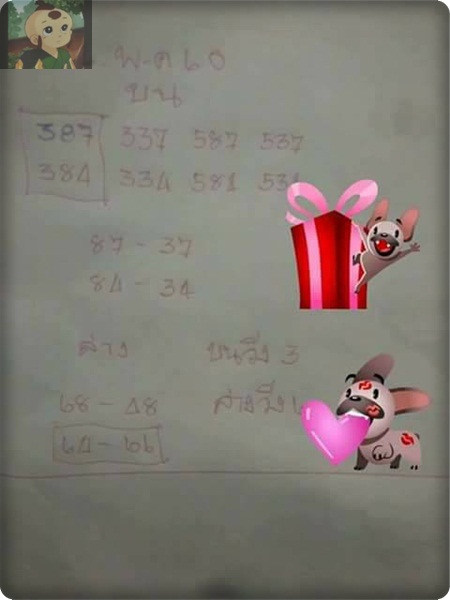 พ.ค 60
บน
387 337 587 537
384 334 581 531
87 - 37
84 - 34
ล่าง บนวิ่ง 3
68 - 48 ล่างวิ่ง
64 - 66